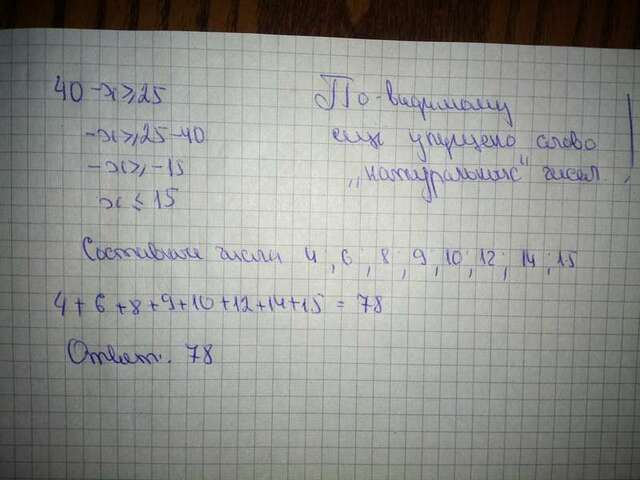 40 - x ≥ 25
- x ≥ 25 - 40
- x ≥ - 15
x ≤ 15
По-видимому
ещё упущено слово
„натуральных" чисел
Составные числа 4 ; 6 ; 8 ; 9 ; 10 ; 12 ; 14 ; 15
4 + 6 + 8 + 9 + 10 + 12 + 14 + 15 = 78
Ответ. 78